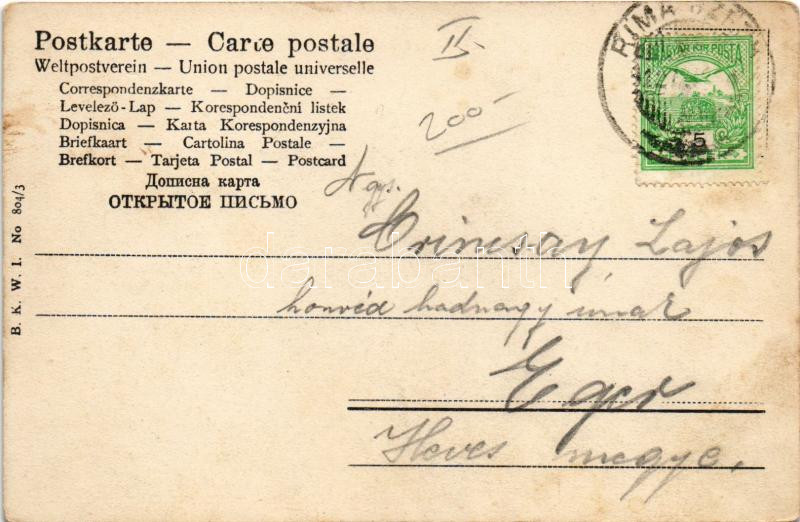 Postkarte — Carte postale
Weltpostverein — Union postale universelle
Correspondenzkarte — Dopisnice —
Levelező-Lap — Korespondenční listek
Dopisnica — Karta Korespondenzyjna
Briefkaart — Cartolina Postale —
Brefkort — Tarjeta Postal — Postcard
Дописна карта
ОТКРЫТОЕ ПИСЬМО
B. K. W. I. No 804/3
II.
200-
RIMASZ
MAGYAR KIR. POSTA
5
darabanth
Lajos
honvéd hadnagy úrnak
Eger
Heves megye.